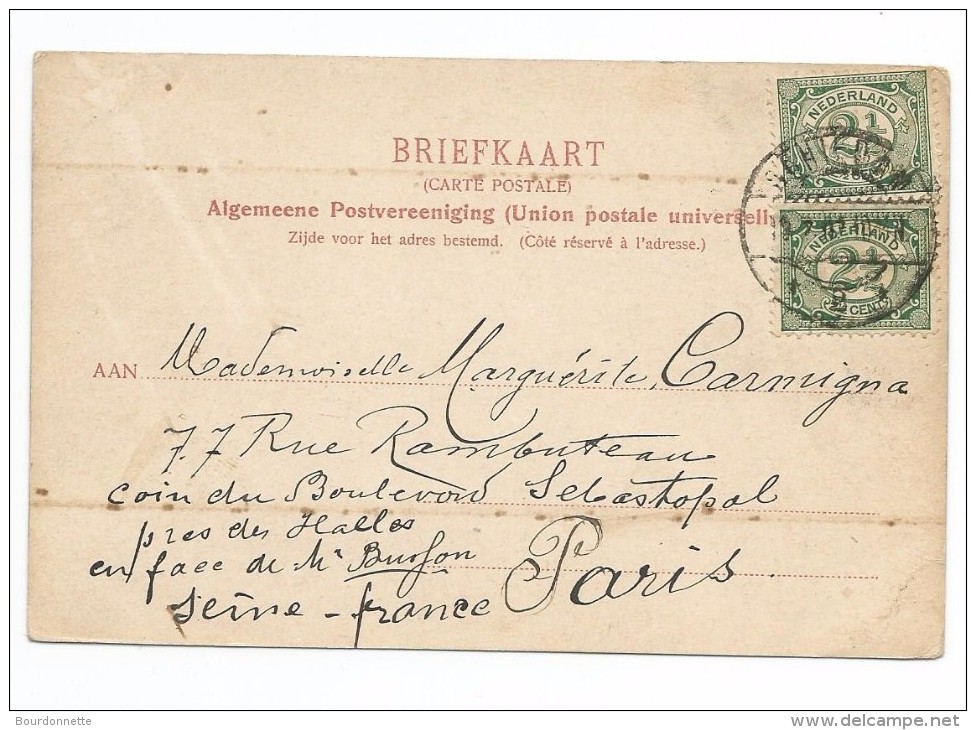 BRIEFKAART
(CARTE POSTALE)
Algemeene Postvereeniging (Union postale universell
Zijde voor het adres bestemd. (Côté réservé à l'adresse.)
NEDERLAND
2½
NEDERLAND
2½
CENTS
AAN Mademoiselle Marguérite Carmigna
77 Rue Rambuteau
coin du Boulevard Sebastopol
pres des Halles
en face de Mr
Paris
Seine - france
Bourdonnette
delcampe.net